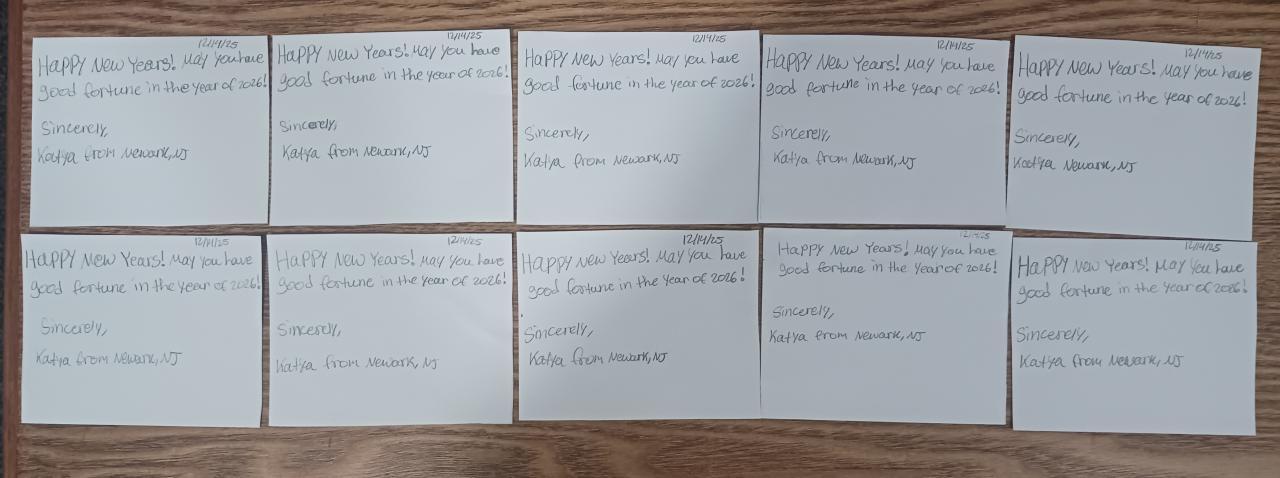 12/14/25
Happy New Years! May you have
good fortune in the year of 2026!
Sincerely,
Katya from Newark, NJ
12/14/25
Happy New Years! May you have
good fortune in the year of 2026!
Sincerely,
Katya from Newark, NJ
12/14/25
Happy New Years! May you have
good fortune in the year of 2026!
Sincerely,
Katya from Newark, NJ
12/14/25
Happy New Years! May you have
good fortune in the year of 2026!
Sincerely,
Katya from Newark, NJ
12/14/25
Happy New Years! May you have
good fortune in the year of 2026!
Sincerely,
Katya Newark, NJ
12/14/25
Happy New Years! May you have
good fortune in the year of 2026!
Sincerely,
Katya from Newark, NJ
12/14/25
Happy New Years! May you have
good fortune in the year of 2026!
Sincerely,
Katya from Newark, NJ
12/14/25
Happy New Years! May you have
good fortune in the year of 2026!
Sincerely,
Katya from Newark, NJ
12/14/25
Happy New Years! May you have
good fortune in the year of 2026!
Sincerely,
Katya from Newark, NJ
12/14/25
Happy New Years! May you have
good fortune in the year of 2026!
Sincerely,
Katya from Newark, NJ